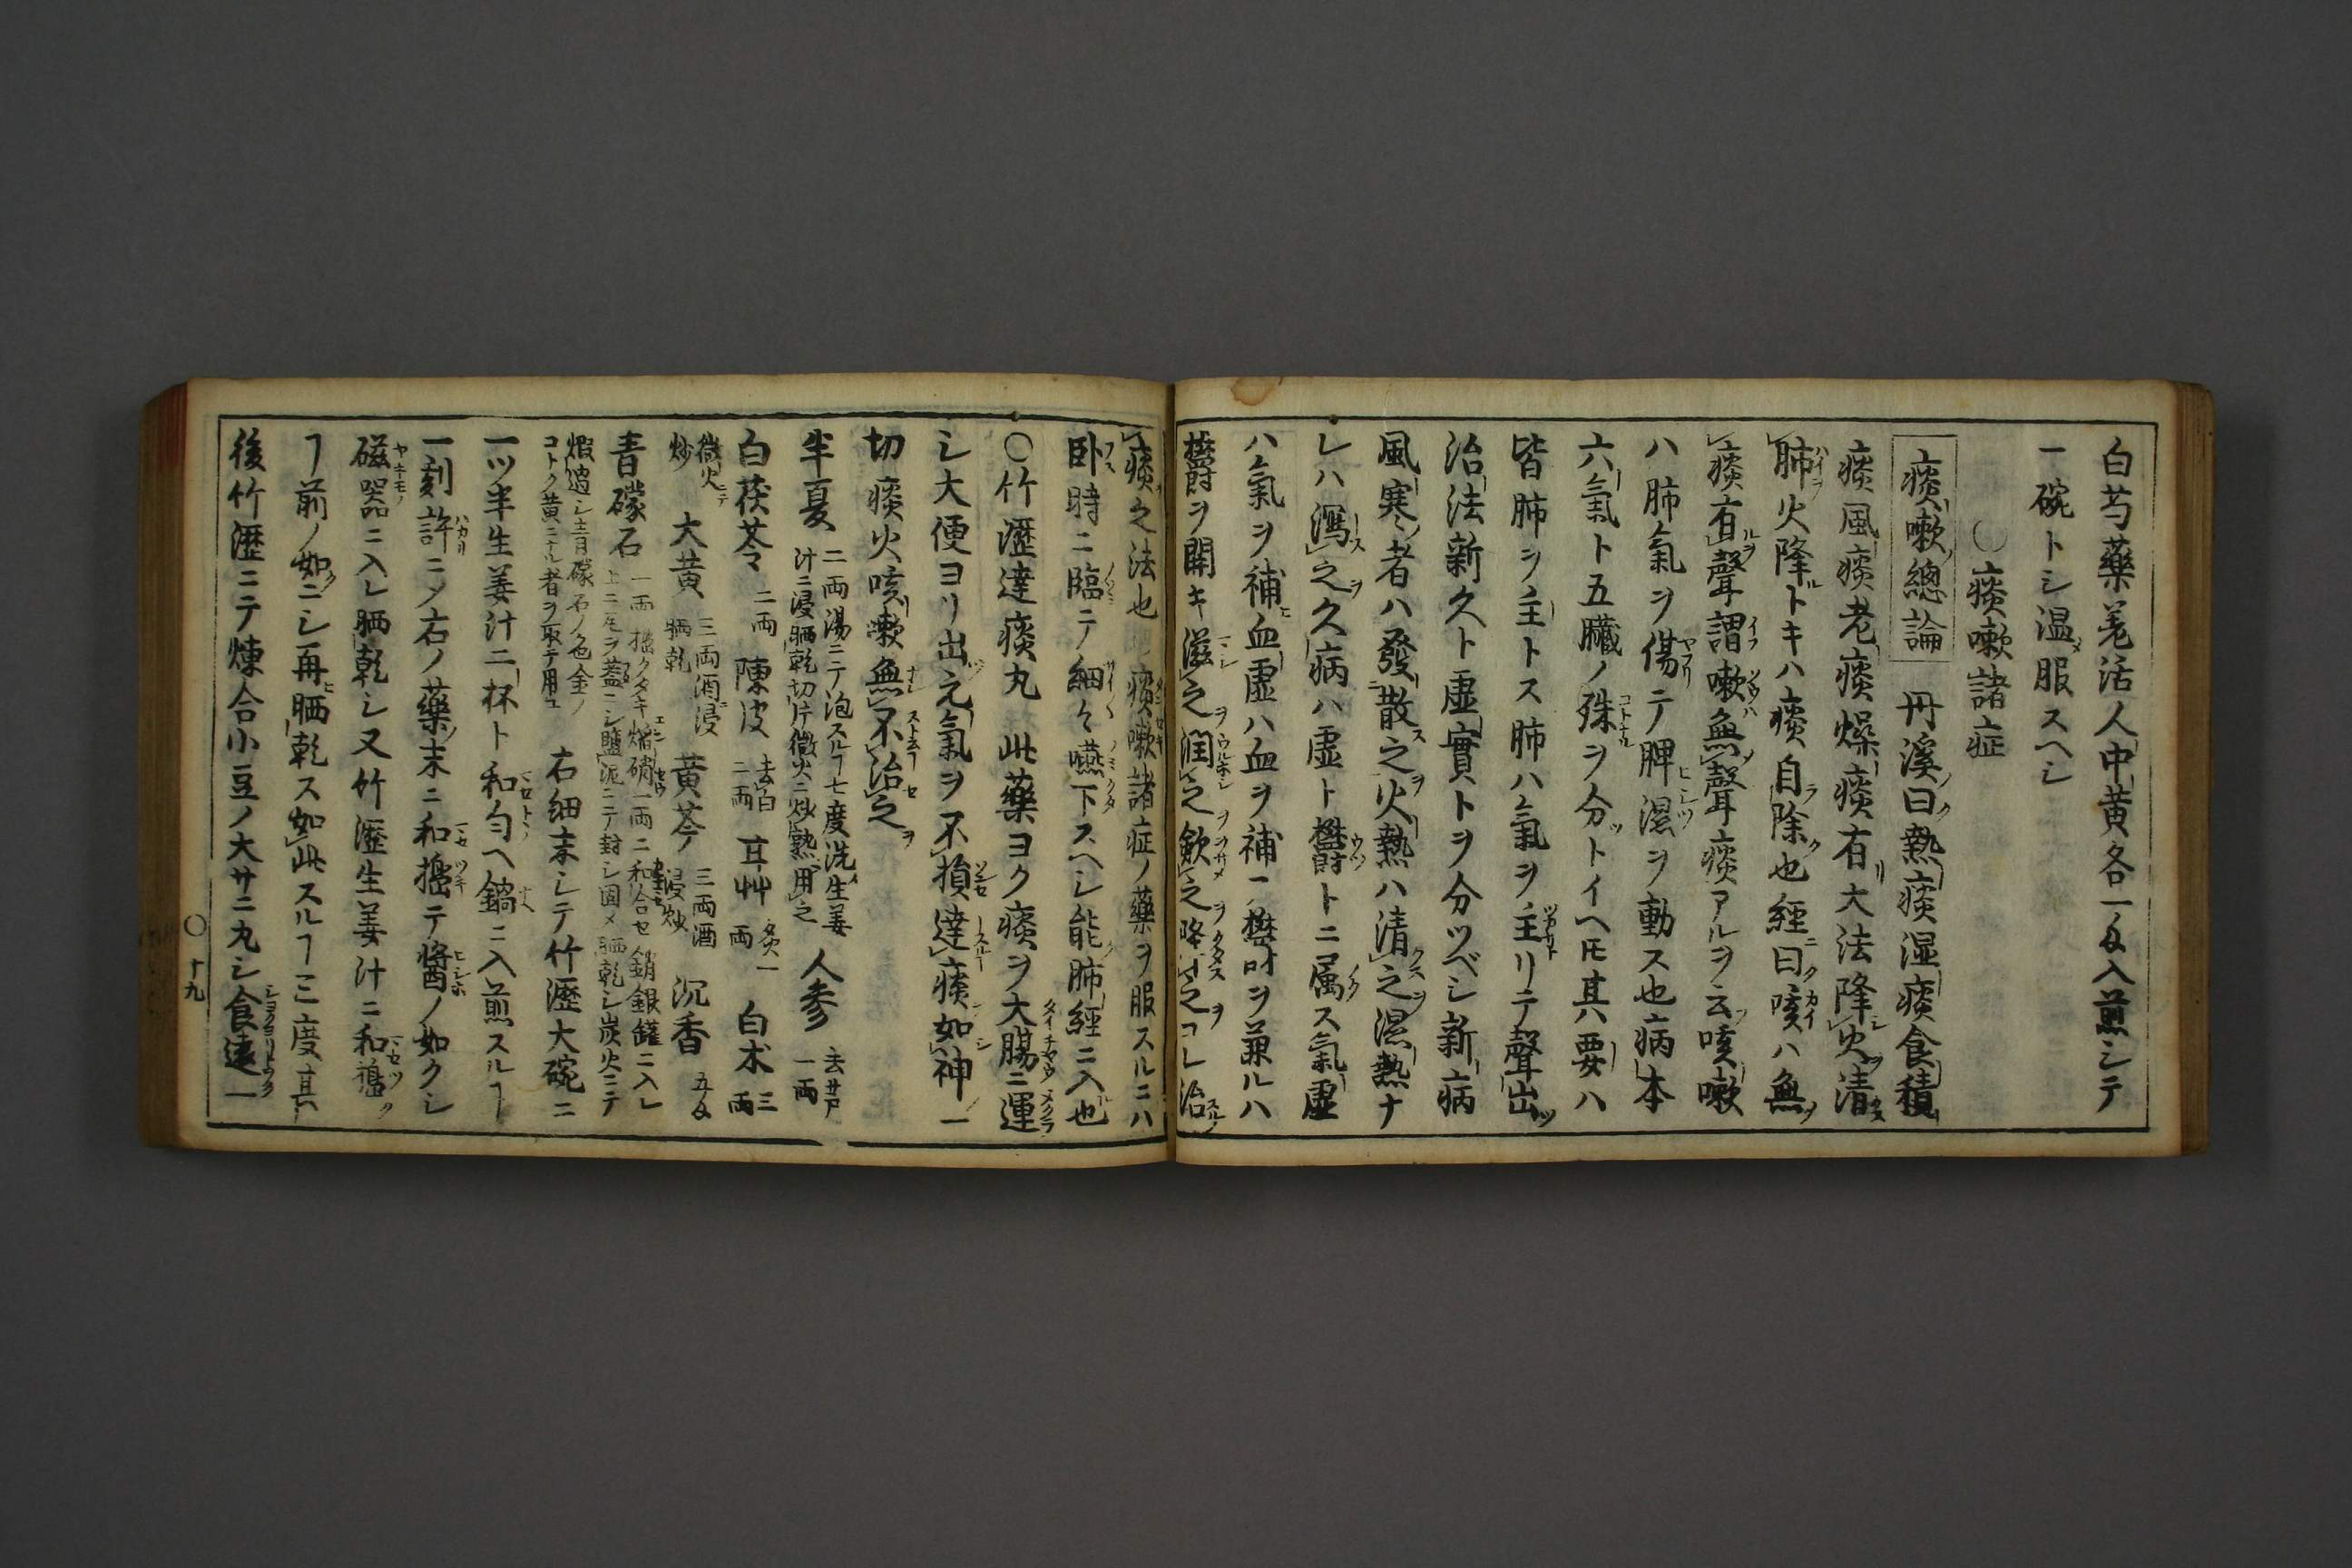 白芍藥羌活人中黄各一匁入煎シテ
一碗トシ温服スヘシ
〇痰嗽諸症
痰嗽總論 丹溪曰熱痰湿痰食積
痰風痰老痰燥痰有大法降火清
肺火降トキハ痰自除也經曰咳ハ無
痰有聲謂嗽無聲痰アルヲ云咳嗽
ハ肺氣ヲ傷テ脾濕ヲ動ス也病本
六氣ト五臓ノ殊ヲ分トイヘ𪜈其要ハ
皆肺ヲ主トス肺ハ氣ヲ主リテ聲出
治法新久ト虚實トヲ分ツベシ新病
風寒者ハ發散之火熱ハ清之濕熱ナ
レハ瀉之久病ハ虚ト欝トニ属ス氣虚
ハ氣ヲ補血虚ハ血ヲ補一欝吋ヲ兼ルハ
欝ヲ開キ滋之潤之歛之降之コレ治
痰之法也 痰嗽諸症ノ藥ヲ服スルニハ
卧時ニ臨テ細々嚥下スヘシ能肺經ニ入也
〇竹瀝達痰丸 此藥ヨク痰ヲ大腸ニ運
シ大便ヨリ出元氣ヲ不損達痰如神一
切痰火咳嗽無不治之
半夏 二両湯ニテ泡スルヿ七度洗生姜汁ニ浸晒乾切片微火ニ炒熟用之 人参 去芦一両
白茯苓 二両 陳皮 去白二両 耳艸 炙一両 白朮 三両
微火炒 大黄 三両酒浸晒乾 黄芩 三両酒浸炒 沉香 五匁
青礞石 一両搗クタキ焔硝一両ニ和合セ銷銀鑵ニ入レ上ニ瓦ヲ蓋ニシ鹽泥ニテ封シ固メ晒乾シ炭火ニテ
煆過シ青礞石ノ色金ノコトク黄ニナル者ヲ取テ用ユ 右細末シテ竹瀝大碗ニ
一ツ半生姜汁二杯ト和勻ヘ鍋ニ入煎スルヿ
一刻許ニ〆右ノ藥末ニ和搗テ醬ノ如クシ
磁器ニ入レ晒乾シ又竹瀝生姜汁ニ和搗
ヿ前ノ如ニシ再晒乾ス如此スルヿ三度其
後竹瀝ニテ煉合小豆ノ大サニ丸シ食遠一
〇十九